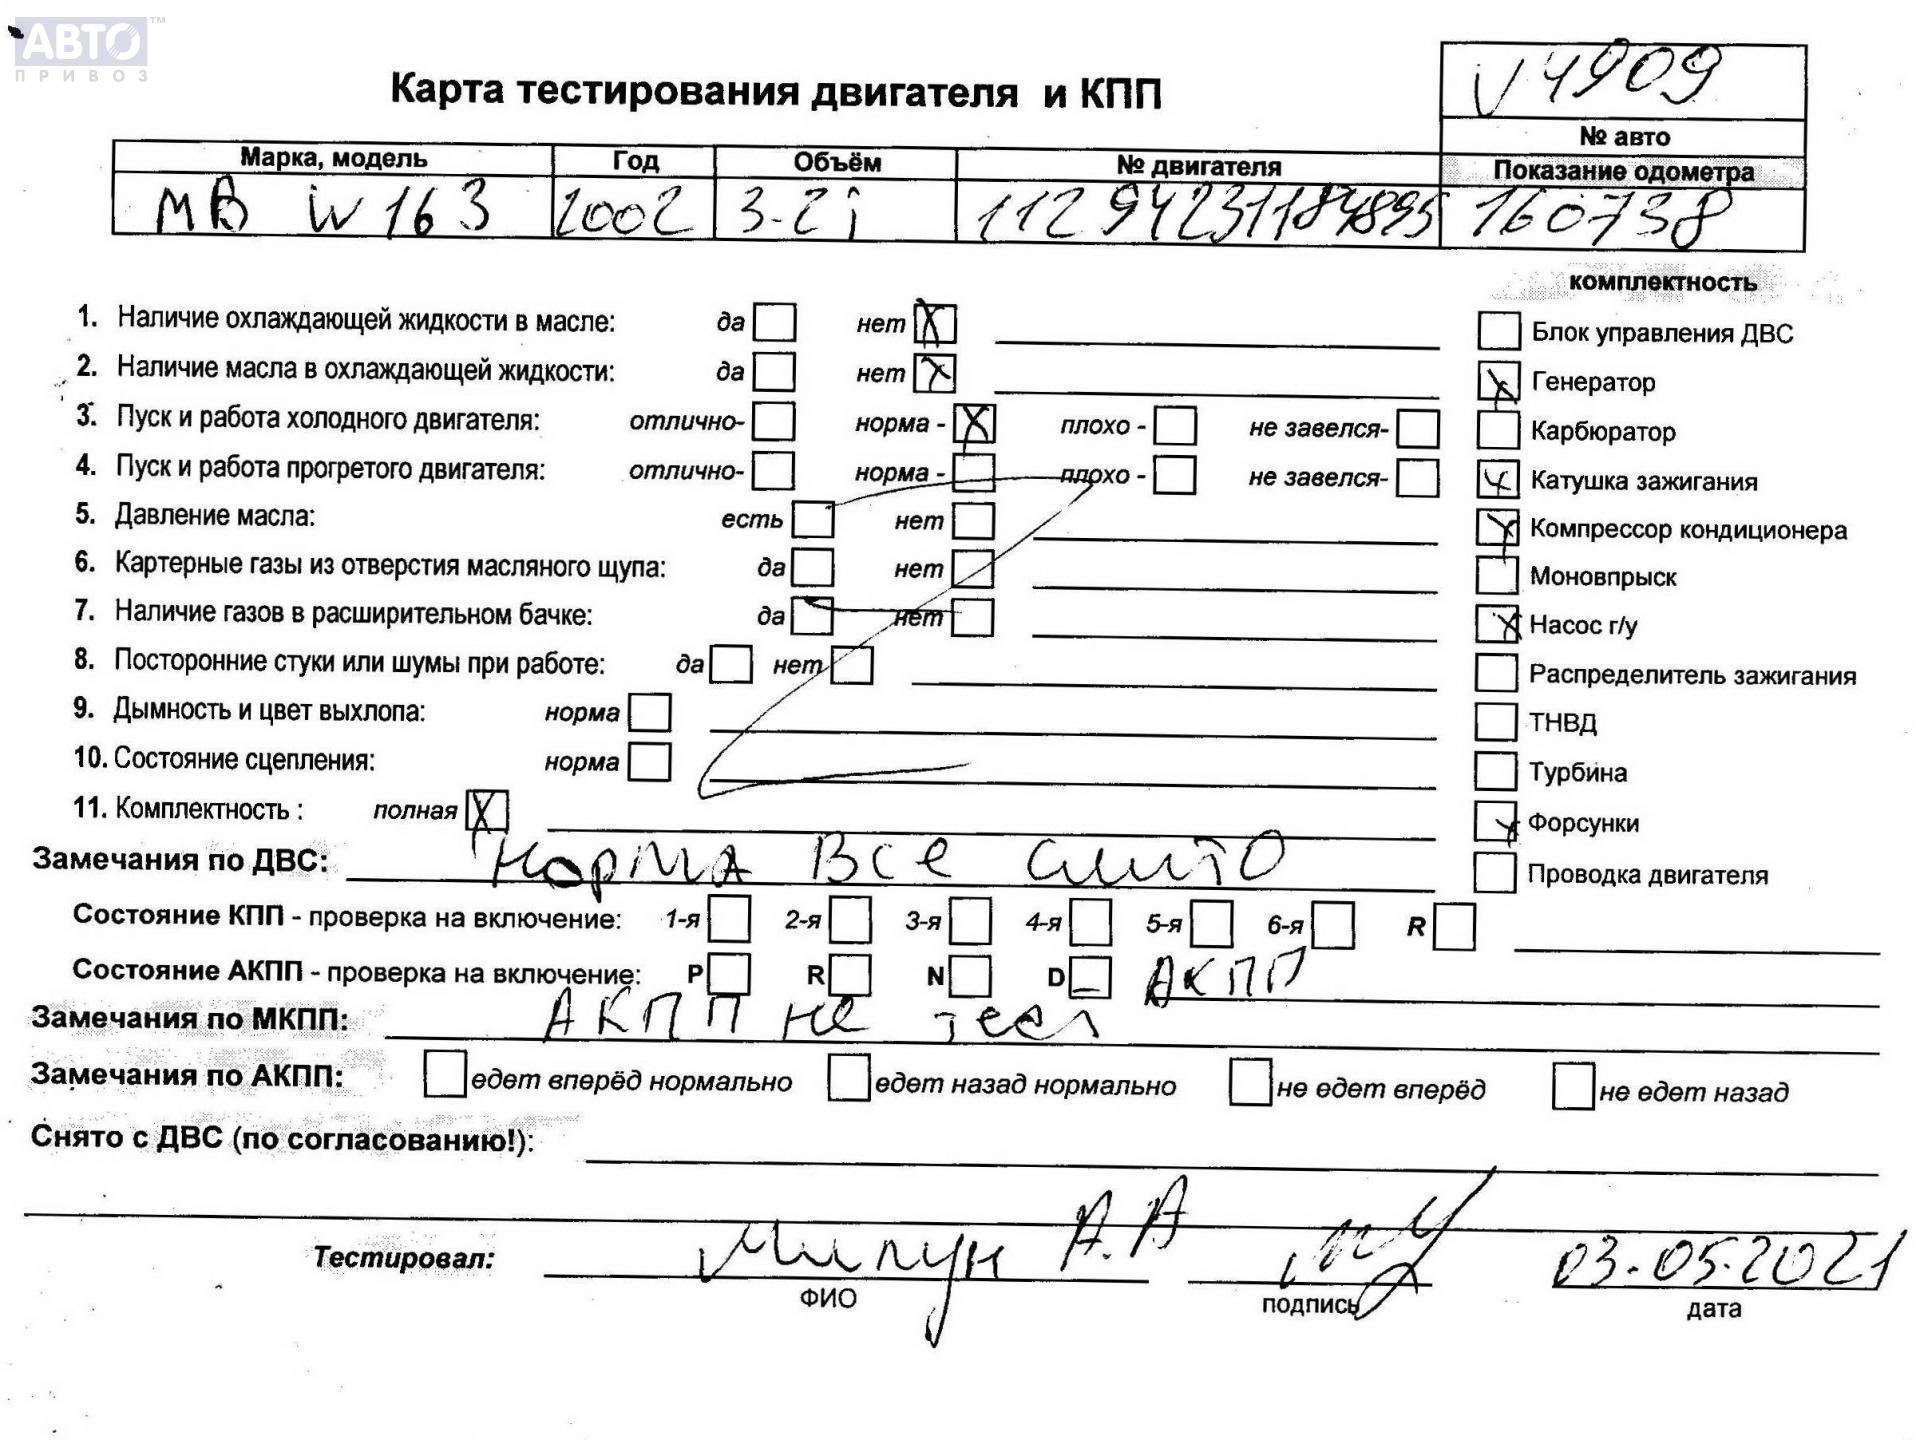 АВТО™
ПРИВОЗ
Карта тестирования двигателя и КПП
V4909
№ авто
Марка, модель Год Объём № двигателя Показание одометра
MB W163 2002 3-2i 11294231184895 160738
комплектность
1. Наличие охлаждающей жидкости в масле: да нет X
Блок управления ДВС
2. Наличие масла в охлаждающей жидкости: да нет X
Генератор X
3. Пуск и работа холодного двигателя: отлично- норма - X плохо - не завелся-
Карбюратор
4. Пуск и работа прогретого двигателя: отлично- норма - плохо - не завелся-
Катушка зажигания
5. Давление масла: есть нет
Компрессор кондиционера
6. Картерные газы из отверстия масляного щупа: да нет
Моновпрыск
7. Наличие газов в расширительном бачке: да нет
Насос г/у X
8. Посторонние стуки или шумы при работе: да нет
Распределитель зажигания
9. Дымность и цвет выхлопа: норма
ТНВД
10. Состояние сцепления: норма
Турбина
11. Комплектность : полная X
Форсунки
Замечания по ДВС: Норма Все слито
Проводка двигателя
Состояние КПП - проверка на включение: 1-я 2-я 3-я 4-я 5-я 6-я R
Состояние АКПП - проверка на включение: P R N D АКПП
Замечания по МКПП: АКПП не тест
Замечания по АКПП: едет вперёд нормально едет назад нормально не едет вперёд не едет назад
Снято с ДВС (по согласованию!):
Тестировал: А.А 03.05.2021
ФИО подпись дата